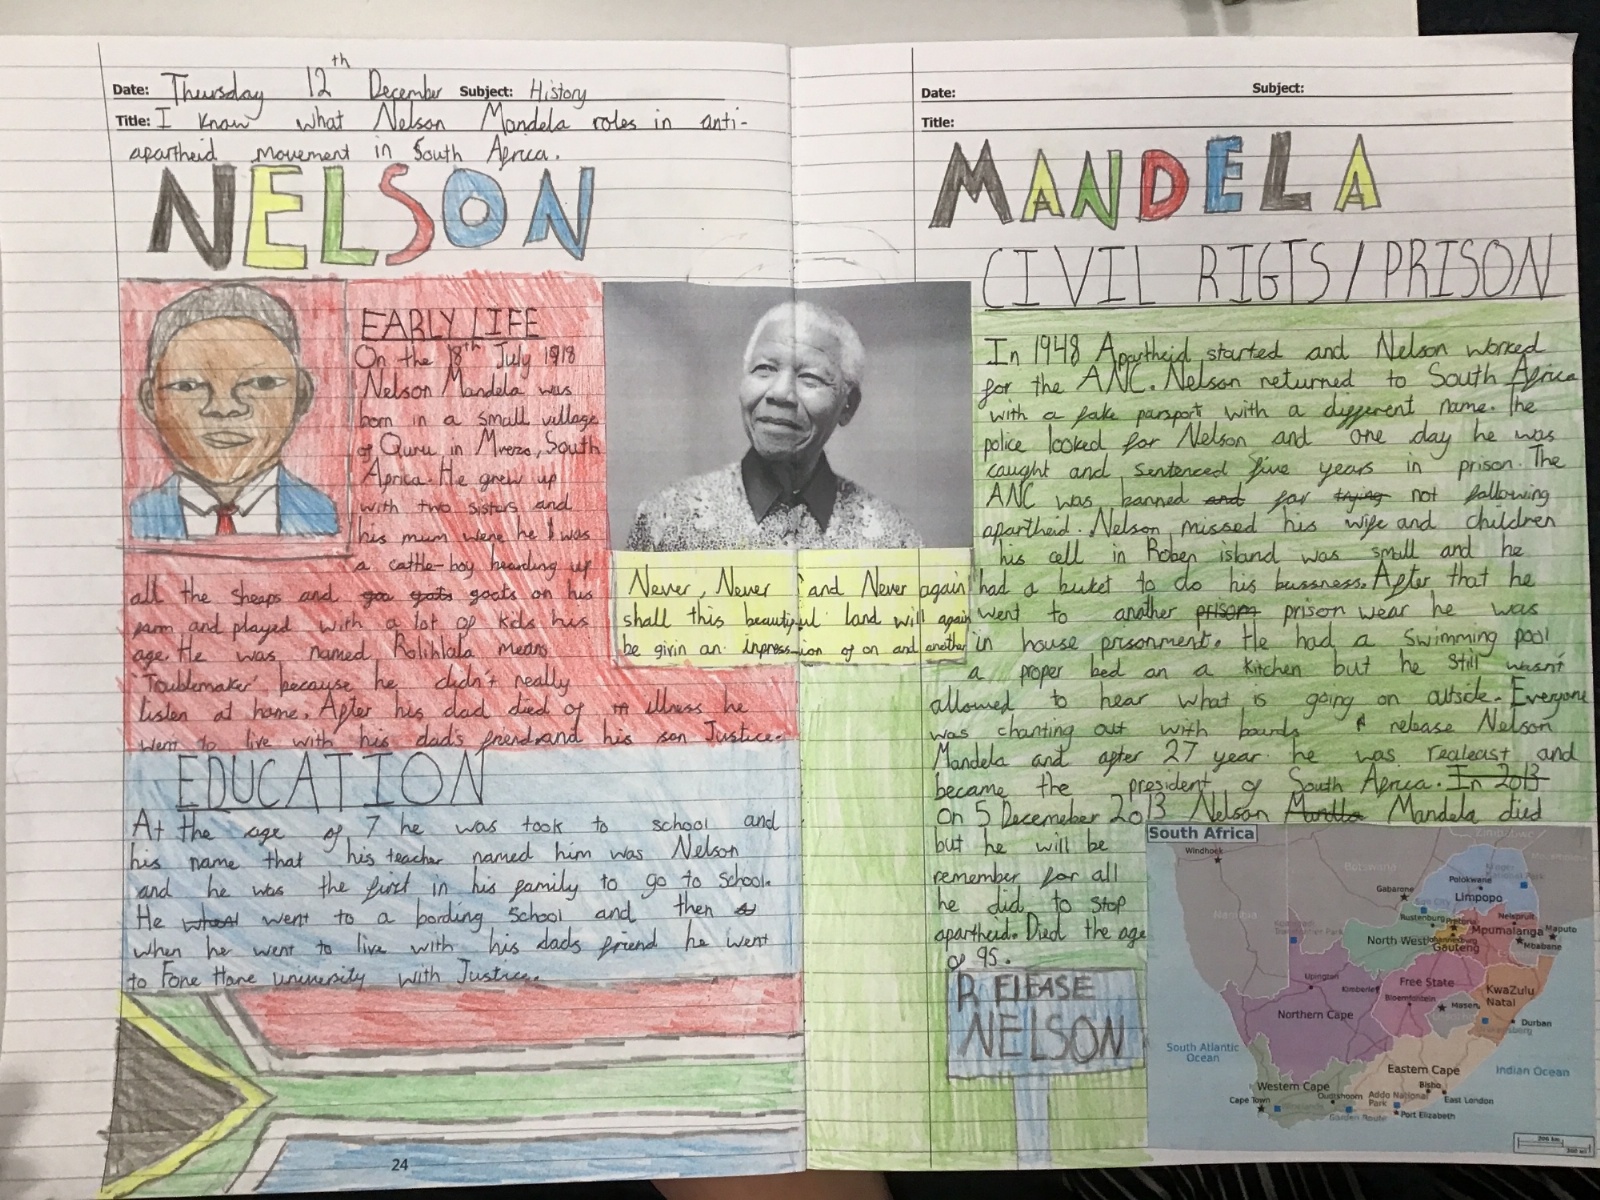 Date: Thursday 12th December Subject: History
Title: I know what Nelson Mandela roles in anti-
apartheid movement in South Africa.
NELSON
EARLY LIFE
On the 18th July 1918
Nelson Mandela was
born in a small village
of Qunu in Mvezo, South
Africa. He grew up
with two sisters and
his mum were he was
a cattle-boy hearding up
all the sheeps and goo goats goats on his
farm and played with a lot of kids his
age. He was named Rolihlala means
'Toublemaker' because he didn't really
listen at home. After his dad died of illness he
went to live with his dad's friend and his son Justice.
EDUCATION
At the age of 7 he was took to school and
his name that his teacher named him was Nelson
and he was the first in his family to go to school.
He went to a bording school and then
when he went to live with his dads friend he went
to Fone Hare university with Justice.
24
Never, Never and Never again
shall this beautiful land will again
be givin an inpression of on and another
Date: Subject:
Title:
MANDELA
CIVIL RIGTS/PRISON
In 1948 Apartheid started and Nelson worked
for the ANC. Nelson returned to South Africa
with a fake parsport with a different name. The
police looked for Nelson and one day he was
caught and sentenced five years in prison. The
ANC was banned and for trying not following
apartheid. Nelson missed his wife and children
his cell in Roben island was small and he
had a buket to do his bussness. After that he
went to another prison wear he was
in house prisonment. He had a swimming pool
a proper bed an a kitchen but he still wasnt
allowed to hear what is going on outside. Everyone
was chanting out with boards release Nelson
Mandela and after 27 year he was realeast and
became the president of South Africa. In 2013
On 5 Decemeber 2013 Nelson Mandela died
but he will be
remember for all
he did to stop
apartheid. Died the age
of 95.
RELEASE
NELSON
South Africa
Windhoek
Zimbabwe
Botswana
Polokwane
Gaborone
Limpopo
Namibia
Rustenburg
Pretoria
Nelspruit
Mpumalanga
Maputo
North West
Johannesburg
Mbabane
Gauteng
Upington
Kimberley
Free State
KwaZulu
Natal
Bloemfontein
Maseru
Northern Cape
Durban
South Atlantic
Ocean
Eastern Cape
Indian Ocean
Western Cape
Bisho
Oudtshoorn
Addo National
Park
East London
Cape Town
Garden Route
Port Elizabeth